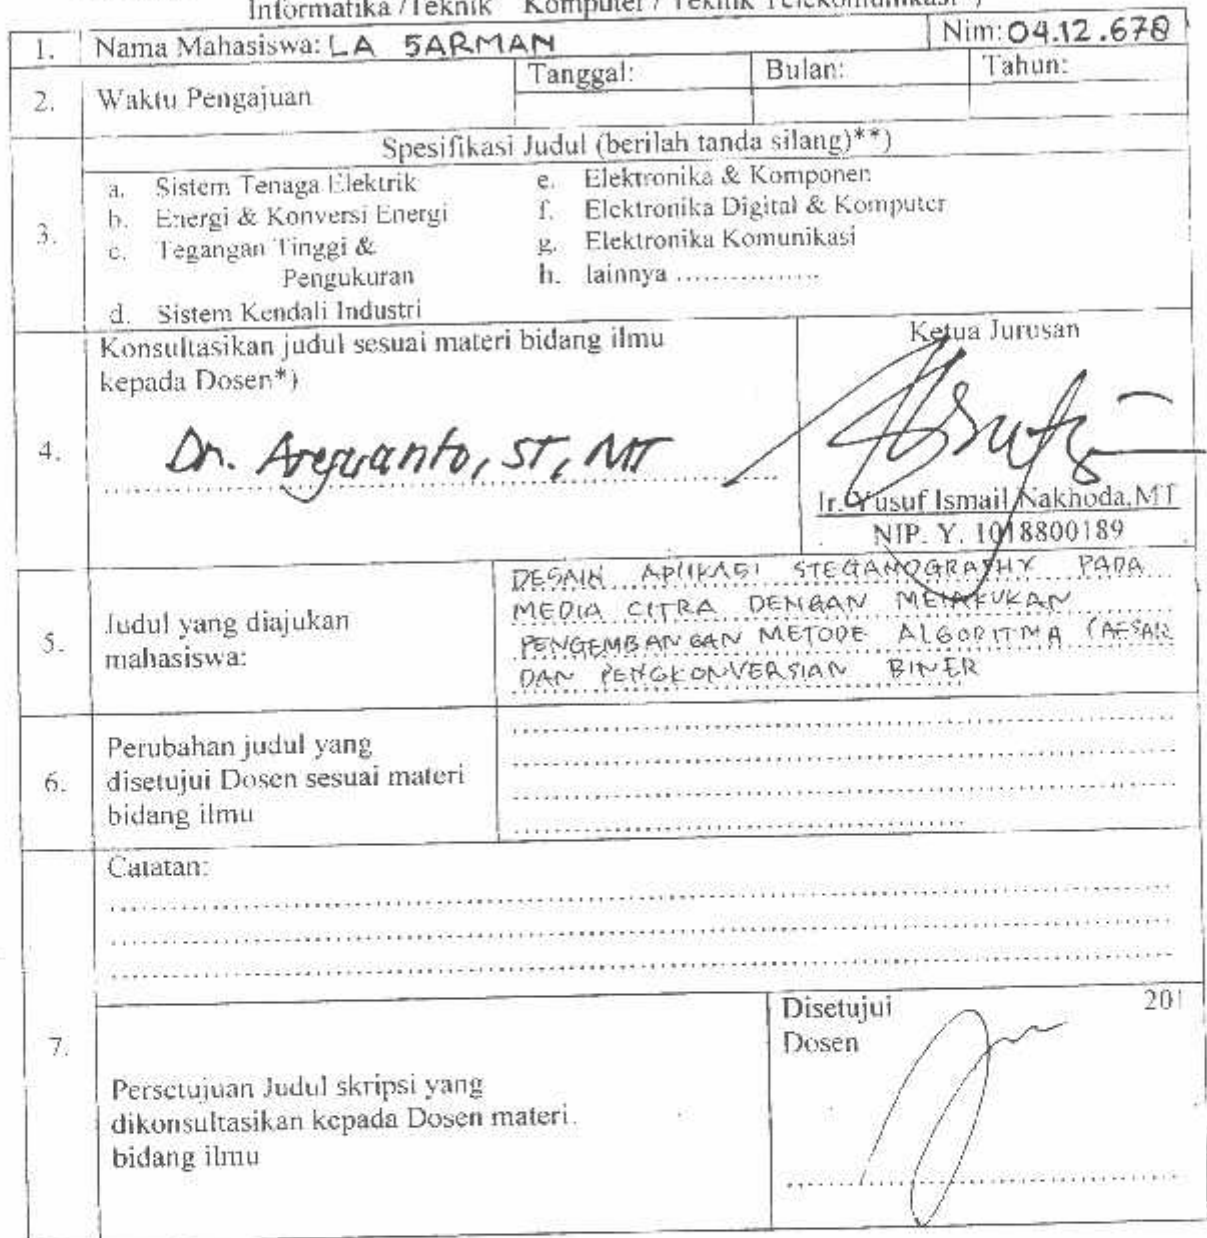 Informatika /Teknik Komputer / Teknik Telekomunikasi *)
1. Nama Mahasiswa: LA SARMAN Nim: 04.12.678
2. Waktu Pengajuan Tanggal: Bulan: Tahun:
Spesifikasi Judul (berilah tanda silang)**)
3.
a. Sistem Tenaga Elektrik
b. Energi & Konversi Energi
c. Tegangan Tinggi &
Pengukuran
d. Sistem Kendali Industri
e. Elektronika & Komponen
f. Elektronika Digital & Komputer
g. Elektronika Komunikasi
h. lainnya .................
4.
Konsultasikan judul sesuai materi bidang ilmu
kepada Dosen*)
Dr. Aryuanto, ST, MT
Ketua Jurusan
Ir. Yusuf Ismail Nakhoda,MT
NIP. Y. 1018800189
5.
Judul yang diajukan
mahasiswa:
DESAIN APLIKASI STEGANOGRAPHY PADA
MEDIA CITRA DENGAN MELAKUKAN
PENGEMBANGAN METODE ALGORITMA CAESAR
DAN PENGKONVERSIAN BINER
6.
Perubahan judul yang
disetujui Dosen sesuai materi
bidang ilmu
7.
Catatan:
Persetujuan Judul skripsi yang
dikonsultasikan kepada Dosen materi
bidang ilmu
Disetujui 201
Dosen